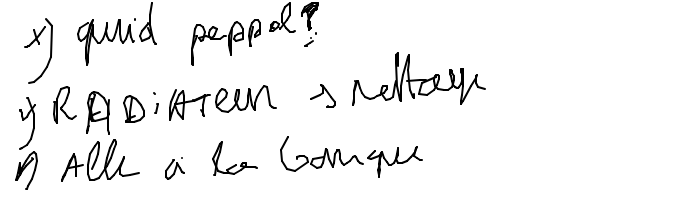 x) quid peppol ?
x) RADiATEUR → nettoyage
x) Aller à la banque